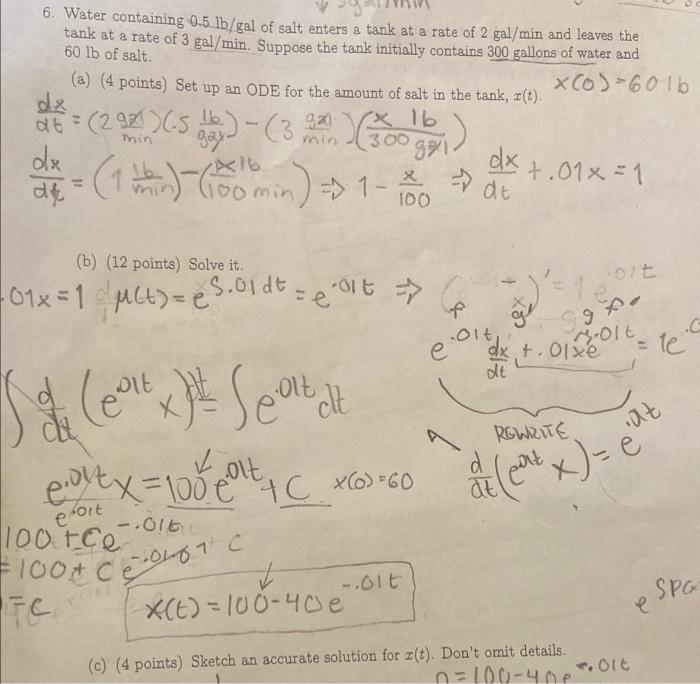 6. Water containing 0.5 lb/gal of salt enters a tank at a rate of 2 gal/min and leaves the
tank at a rate of 3 gal/min. Suppose the tank initially contains 300 gallons of water and
60 lb of salt.
(a) (4 points) Set up an ODE for the amount of salt in the tank, x(t).
x(0)=60 lb
dx/dt = (2 gal/min)(.5 lb/gal) - (3 gal/min)(x lb/300 gal)
dx/dt = (1 lb/min) - (x lb/100 min) ⇒ 1 - x/100 ⇒ dx/dt + .01x = 1
(b) (12 points) Solve it.
.01x = 1 μ(t) = e^∫.01dt = e^.01t ⇒ ( x )' = 1e^.01t
e^.01t dx/dt + .01xe^.01t = 1e
∫ d/dt (e^.01t x) dt = ∫ e^.01t dt
REWRITE
d/dt (e^.01t x) = e^.01t
e^.01t x = 100e^.01t + C x(0)=60
e^.01t
100 + Ce^-.01t
= 100 + Ce^-.01·0 C
= C
x(t) = 100 - 40e^-.01t
(c) (4 points) Sketch an accurate solution for x(t). Don't omit details.
= 100 - 40e^-.01t